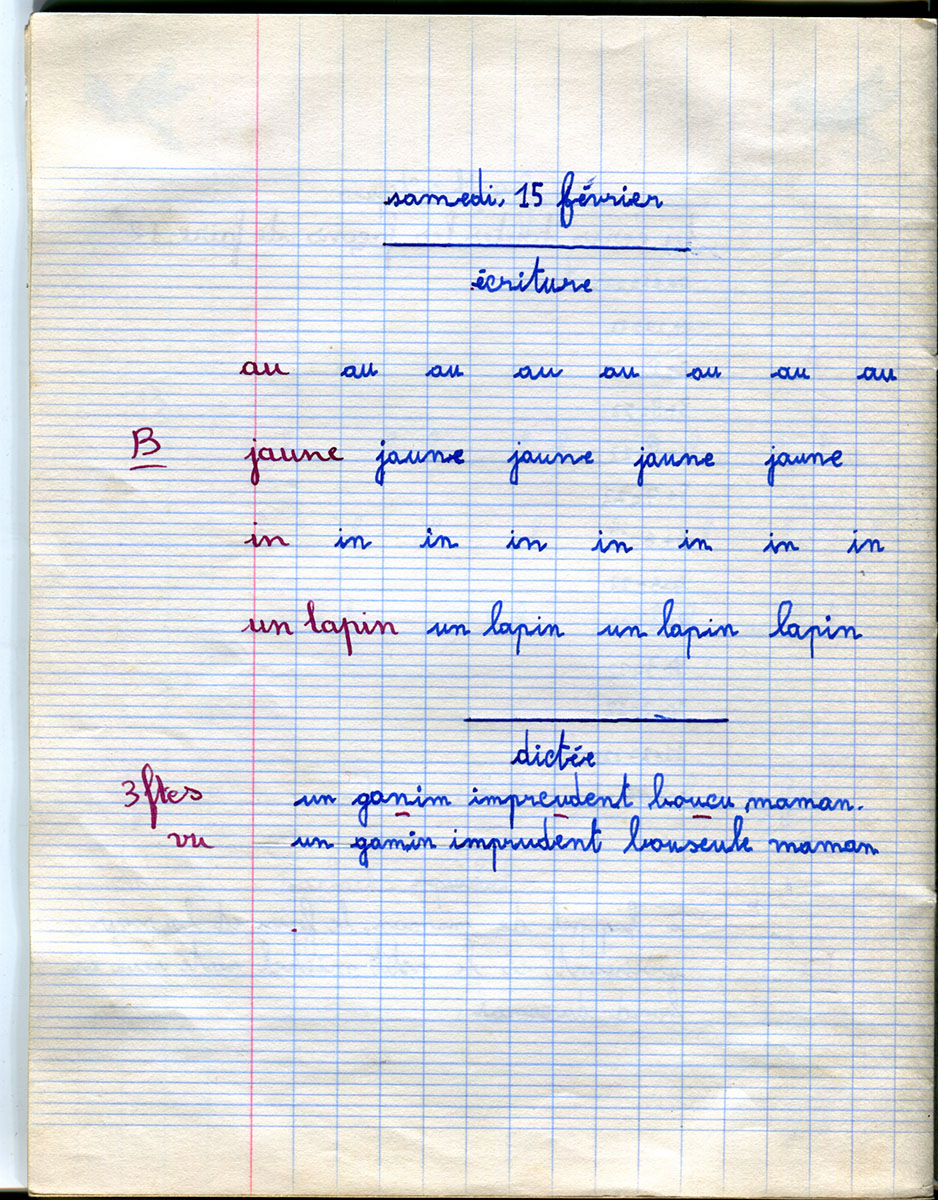 samedi, 15 février
écriture
au au au au au au au au
B jaune jaune jaune jaune jaune
in in in in in in in in
un lapin un lapin un lapin lapin
dictée
3 ftes un ganim impreudent boucu maman.
vu un gamin imprudent bouscule maman